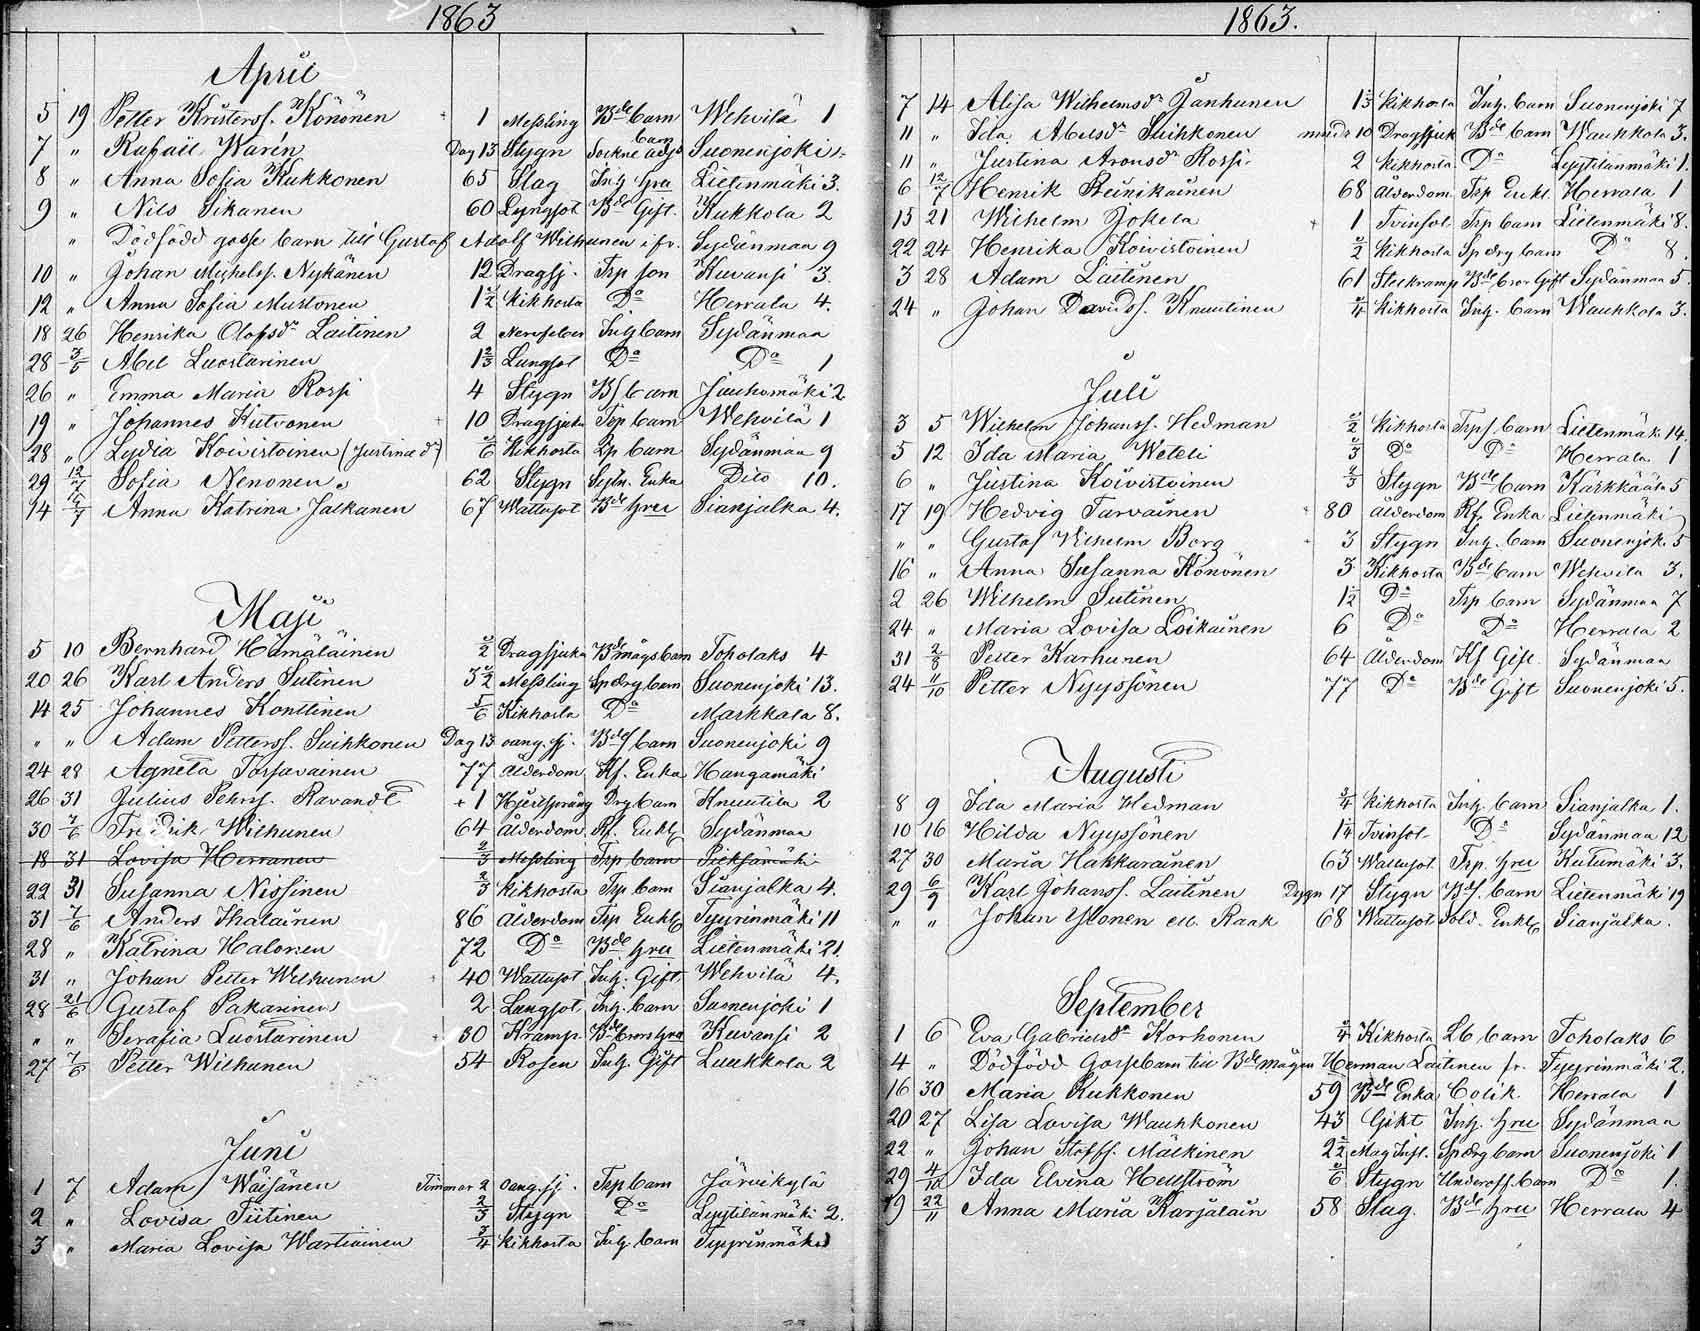 1863
April
5 19 Petter Kristerss. Könönen 1 Messling Bde barn Wehvilä 1
7 " Rafael Warén Dag 13 Stygn Sockne adj. barn Suonenjoki
8 " Anna Sofia Kukkonen 65 Slag Inh. hru Lietenmäki 3.
9 " Nils Sikanen 60 Lungsot Bde Gift. Kukkola 2
" Dödfödd gosse barn till Gustaf Adolf Wilhunen i fr. Sydänmaa 9
10 " Johan Michelss. Nykänen 12 Dragsj. Trp son Kuvansi 3.
12 " Anna Sofia Mustonen 1 1/2 Kikhosta Do Herrala 4.
18 26 Henrika Olofsdr Laitinen 2 Nervfeber Inh. barn Sydänmaa
28 3/5 Abel Luostarinen 1 2/3 Lungsot Do Do 1
26 " Emma Maria Rossi 4 Stygn Bf barn Jauhomäki 2
19 " Johannes Kutvonen 10 Dragsjuka Trp barn Wehvilä 1
28 " Lydia Koivistoinen (Justinæ dr) 5/6 Kikhosta Lp barn Sydänmaa 9
29 12/7 Sofia Nenonen 62 Stygn Sytn. Enka Dito 10.
14 Anna Katrina Jalkanen 67 Wattusot Bde hru Sianjalka 4.
Maji
5 10 Bernhard Hämäläinen 1/2 Dragsjuka Bdemågs barn Toholaks 4
20 26 Karl Anders Sutinen 3 1/2 Messling Spdrg barn Suonenjoki 13.
14 25 Johannes Konttinen 5/6 Kikhosta Do Markkala 8.
" " Adam Petterss. Suihkonen Dag 13 oang. sj. Bds barn Suonenjoki 9
24 28 Agneta Tarfvainen 77 Ålderdom Kf. Enka Hangamäki
26 31 Julius Pehrss. Ravandt + 1 Hjertsprång Drg barn Knuutila 2
30 7/6 Fredrik Wilhunen 64 Ålderdom Rf. Enkl. Sydänmaa
18 31 Lovisa Herranen 2/3 Messling Trp barn Pieksämäki
22 31 Susanna Nissinen 2/3 Kikhosta Trp barn Sianjalka 4.
31 7/6 Anders Ihalainen 86 Ålderdom Trp Enkl. Tyyrinmäki 11
28 " Katrina Halonen 72 Do Bde hru Lietenmäki 21.
31 " Johan Petter Wilhunen 40 Wattusot Inh. Gift Wehvilä 4.
28 21/6 Gustaf Pakarinen 2 Lungsot Inh. barn Suonenjoki 1
" " Serafia Luostarinen 30 Kramp. Bde brors hru Kuvansi 2
27 7/6 Petter Wilhunen 54 Rosen Inh. Gift Luukkola 2
Juni
1 7 Adam Wäisänen Timmar 2 oang. sj. Trp barn Järvikylä
2 " Lovisa Tiitinen 2/3 Stygn Do Lyytilänmäki 2.
3 " Maria Lovisa Wartiainen 3/4 Kikhosta Inh. barn Tyyrinmäki
1863.
7 14 Alisa Wilhelmsdr Janhunen 1 1/3 Kikhosta Inh. barn Suonenjoki 7
11 " Ida Abelsdr Suihkonen månadr 10 Dragsjuk Bde barn Waukkola 3.
11 " Justina Aronsdr Rossi 2 Kikhosta Do Lyytilänmäki 1.
6 12/7 Henrik Reinikainen 68 Ålderdom Trp Enkl. Herrala 1
15 21 Wilhelm Jokela 1 Tvinsot Trp barn Lietenmäki 8.
22 24 Henrika Koivistoinen 1/2 Kikhosta Spdrg barn Do 8.
3 28 Adam Laitinen 61 Steckramp Bde bror Gift Sydänmaa 5
24 " Johan Davidss. Knuutinen 1/4 Kikhosta Inh. barn Waukkola 3.
Juli
3 5 Wilhelm Johanss. Hedman 1/2 Kikhosta Trps. barn Lietenmäk 14.
5 12 Ida Maria Weteli 2/3 Do Do Herrala 1
6 " Justina Koivistoinen 2/3 Stygn Bde barn Kärkkäälä 5
17 19 Hedvig Tarvainen 80 Ålderdom Rf. Enka Lietenmäki
" " Gustaf Wilhelm Borg 3 Stygn Inh. barn Suonenjoki 5
16 " Anna Susanna Könönen 3 Kikhosta Bde barn Wehvilä 3.
2 26 Wilhelm Sutinen 1 1/2 Do Trp barn Sydänmaa 7
24 " Maria Lovisa Loikainen 6 Do Do Herrala 2
31 2/8 Petter Karhunen 64 Ålderdom Kf Gift. Sydänmaa
24 11/10 Petter Nyyssönen 77 Do Bde Gift Suonenjoki 5.
Augusti
8 9 Ida Maria Hedman 3/4 Kikhosta Inh. barn Sianjalka 1.
10 16 Hilda Nyyssönen 1 1/4 Tvinsot Do Sydänmaa 12
27 30 Maria Hakkarainen 63 Wattusot. Trp. hru Kutumäki 3.
29 6/9 Karl Johanss. Laitinen Dygn 17 Stygn Bds. barn Lietenmäki 19
" " Johan Ylönen ell. Raak 68 Wattusot Sold. Enkl. Sianjalka.
September
1 6 Eva Gabrielsdr Korhonen 3/4 Kikhosta Lb barn Toholaks 6
4 " Dödfödd Gossebarn till Bdemågen Herman Laitinen fr. Tyyrinmäki 2.
16 30 Maria Kukkonen 59 Bde Enka Colik. Herrala 1
20 27 Lisa Lovisa Wauhkonen 43 Gikt Inh. hru Sydänmaa
22 " Johan Stafss. Mälkinen 2 1/2 Mag Infl. Spdrg barn Suonenjoki 1
29 4/10 Ida Elvina Hellström 5/6 Stygn Underoff. barn Do 1.
19 22/11 Anna Maria Karjalain 58 Slag. Bde hru Herrala 4